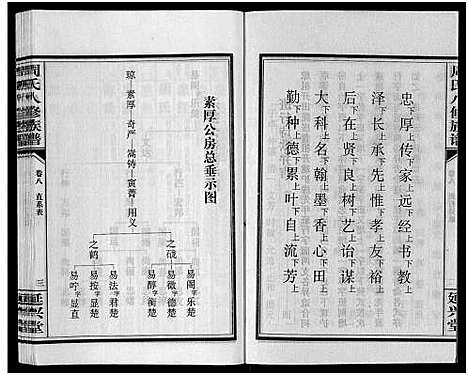 周氏八修族谱
卷八
延兴堂
忠厚上传家下远经上书下教上
泽下长上承先下惟孝上友下裕上
后下在上贤下良上树下艺上诒下谋上
大上科上名下翰上墨上香上心下田上
勤上种下德上累下叶上自上流下芳上
素厚公房总垂示图
琼—素厚—奇严—嵩铸—寅菁—用义
之战
易阁字乐楚
易微字德楚
易醇字衡楚
之鹤
易法字君楚
易按字显楚
易咛字显直
周氏八修族谱
卷八 直系表
三
延兴堂